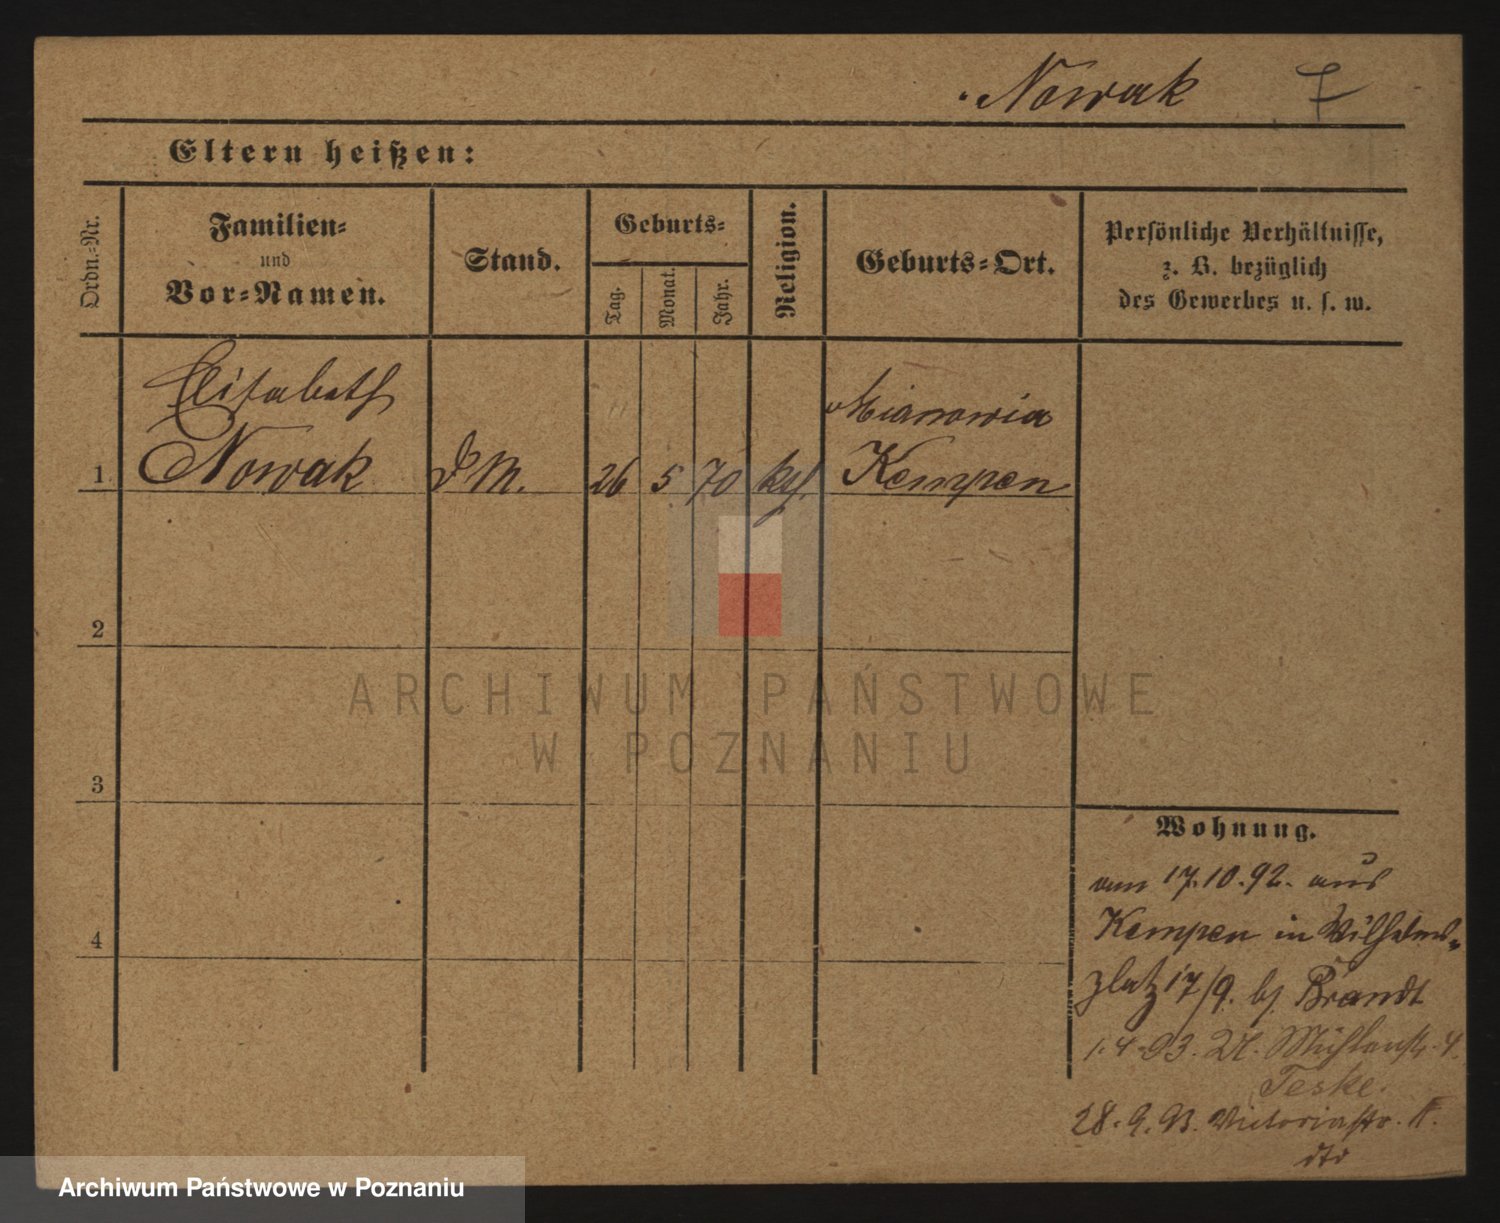 Nowak 7
Eltern heißen:
Ordn.-Nr.
Familien-
und
Vor-Namen.
Stand.
Geburts-
Tag.
Monat.
Jahr.
Religion.
Geburts-Ort.
Persönliche Verhältnisse,
z. B. bezüglich
des Gewerbes u. s. w.
Elisabeth
Mianowia
1 Nowak DM. 26 5 70 kth. Kempen
2
3
4
Wohnung.
am 17.10.92. aus
Kempen in Wilhelms-
platz 17/9. bj Brandt
1.4.93. Mühlenstr. 4.
Teske.
28.9.93. Victoriastr.
dto
ARCHIWUM PAŃSTWOWE
W POZNANIU
Archiwum Państwowe w Poznaniu